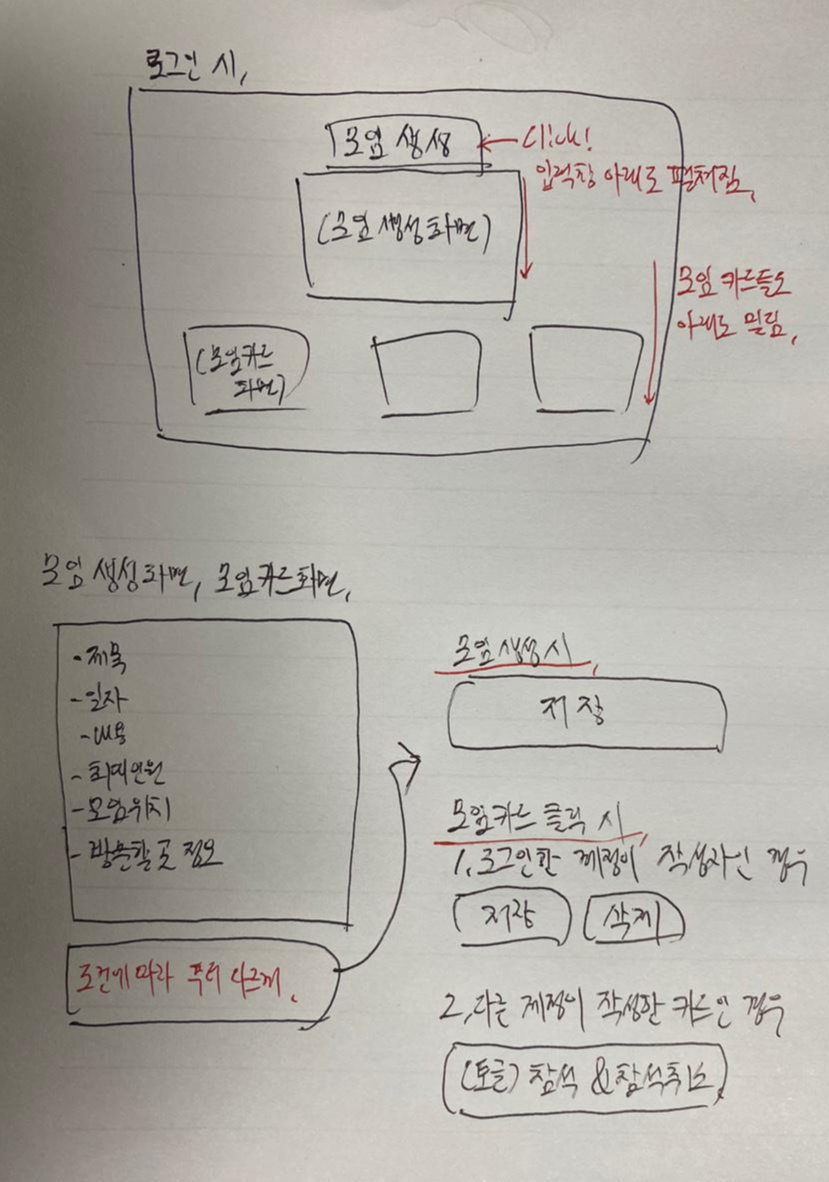 로그인 시,
모임 생성
Click!
입력창 아래로 펼쳐짐,
(모임 생성화면)
모임 카드들도
아래로 밀림,
(모임카드
화면)
모임 생성화면, 모임카드화면,
- 제목
- 일자
- 내용
- 최대인원
- 모임위치
- 방문할 곳 정보
조건에 따라 푸터 다르게,
모임 생성 시,
저장
모임카드 클릭 시,
1, 로그인한 계정이 작성자인 경우
저장
삭제
2, 다른 계정이 작성한 카드인 경우
(토글) 참석 & 참석취소